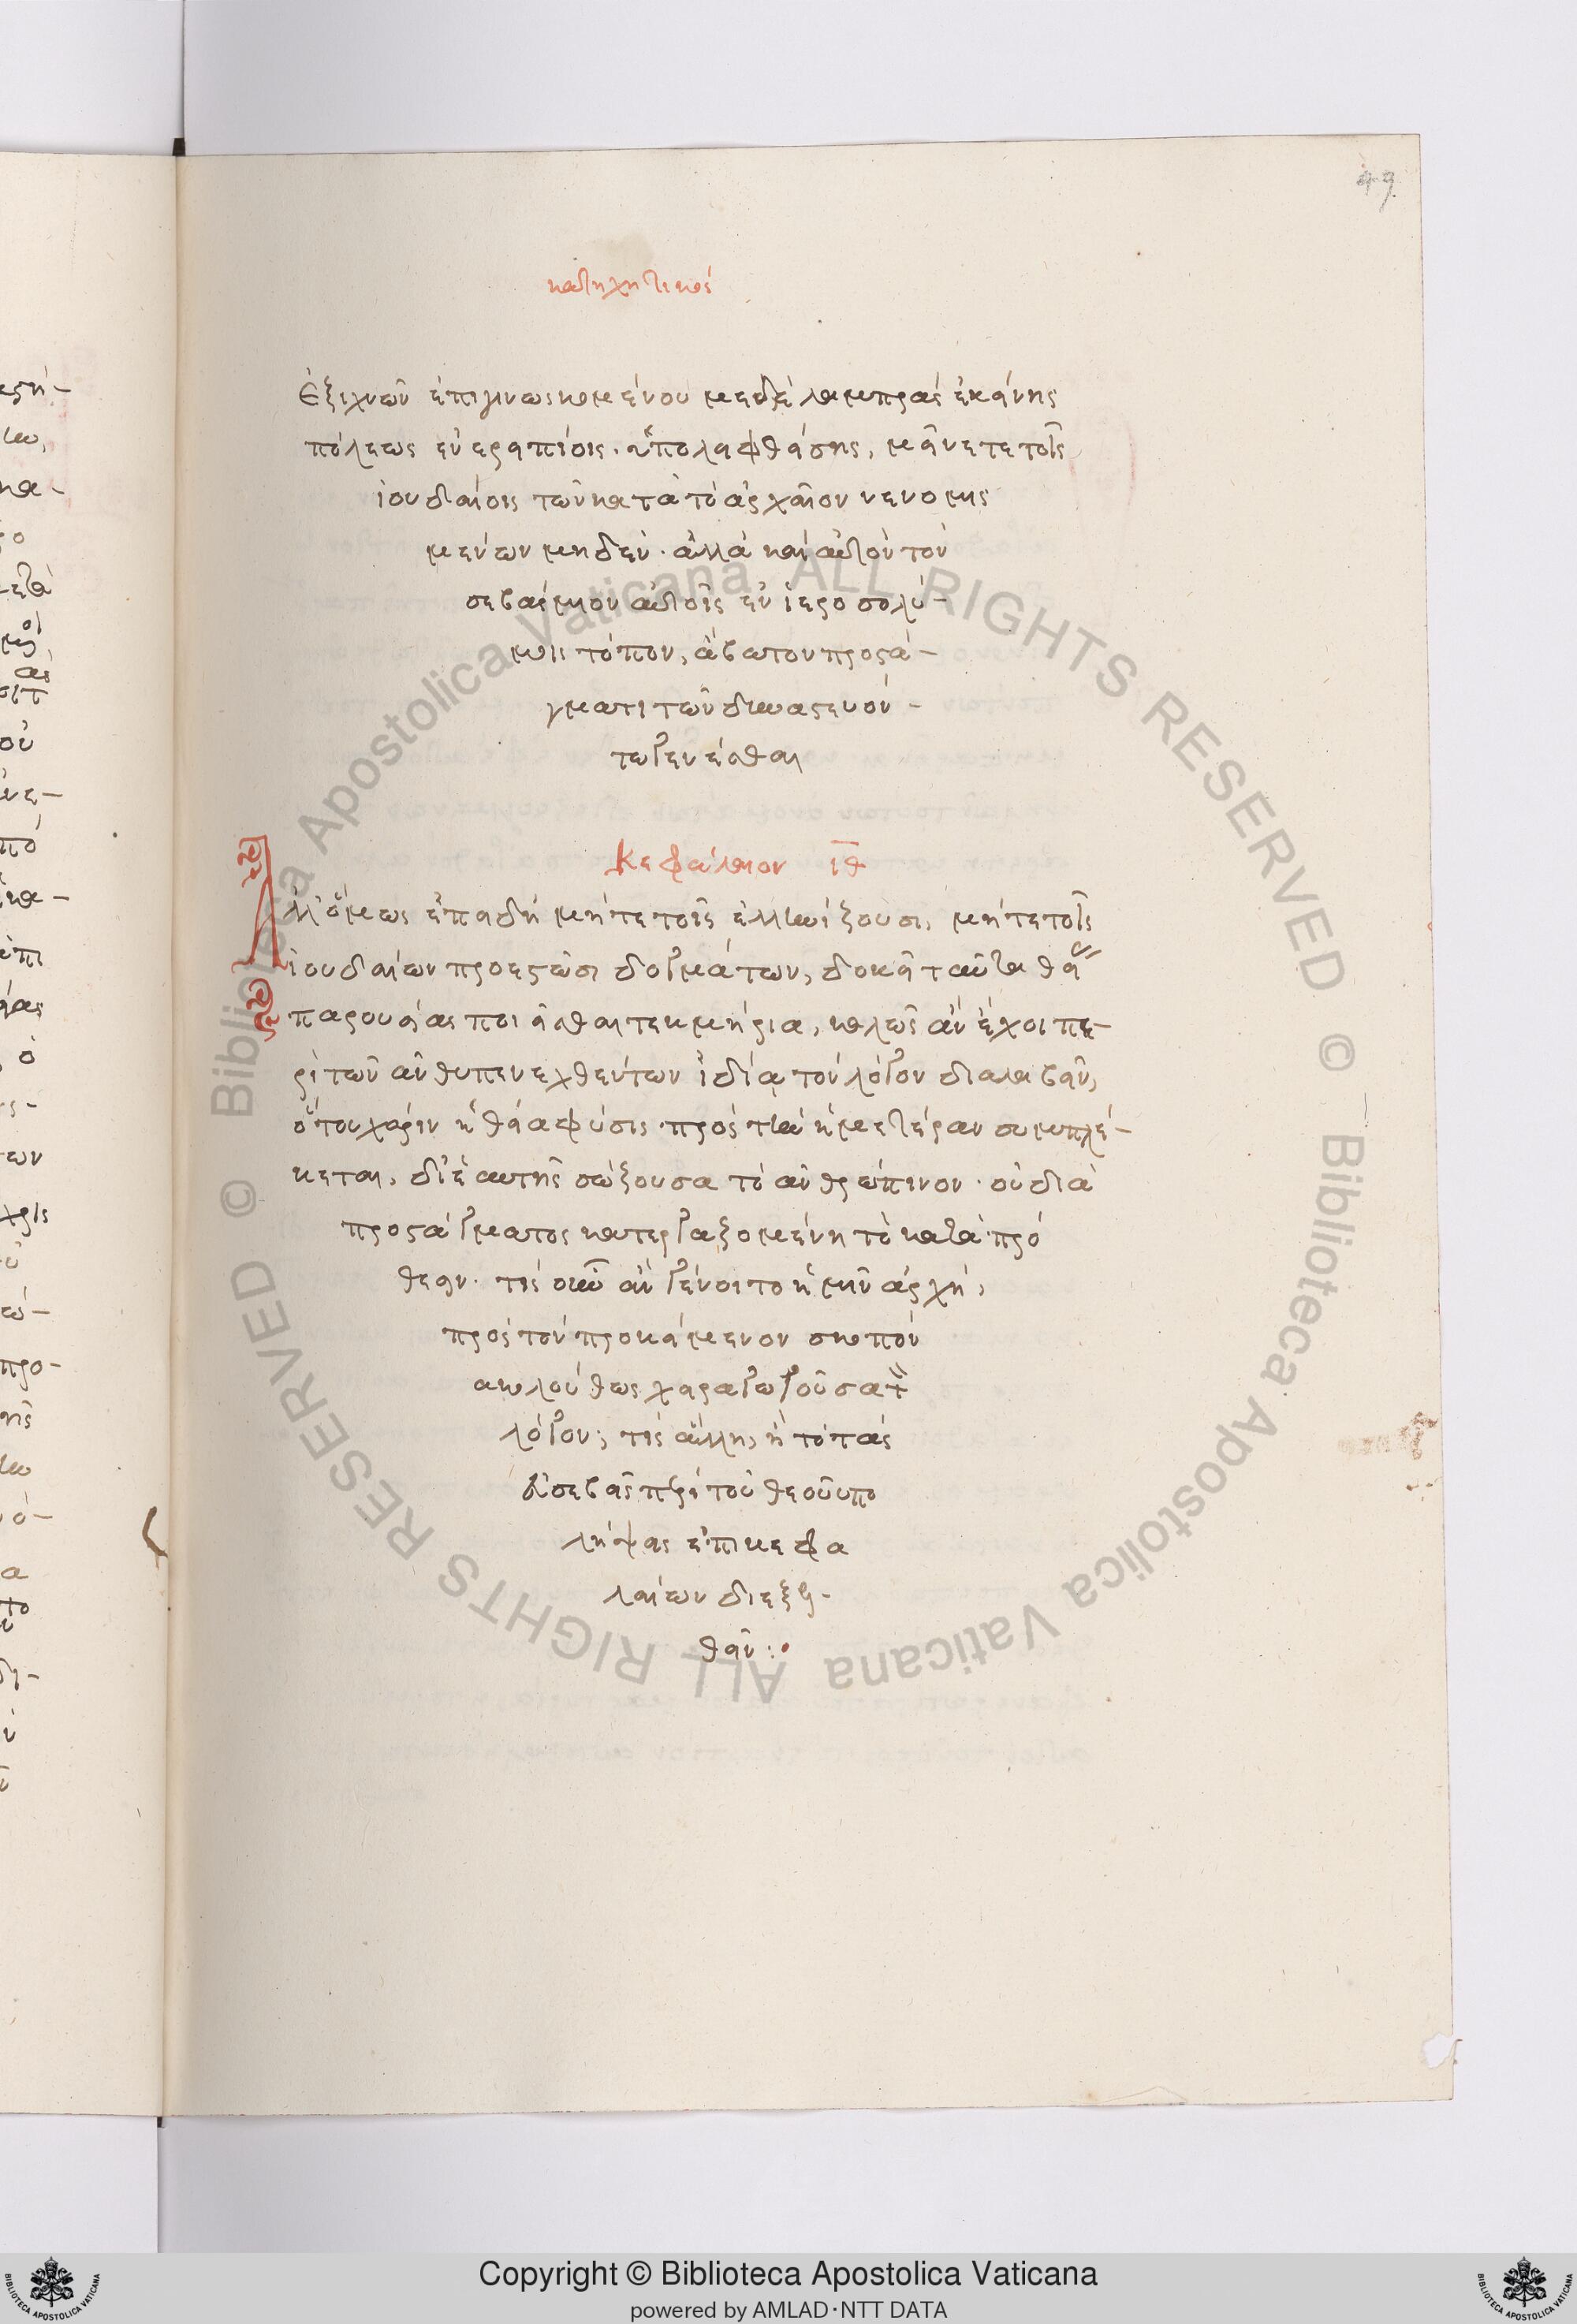 49
κατηχητικός
ἐξ ἰχνῶν ἐπιγινωσκομένου μηδὲ λαμπρᾶς ἐκείνης
πόλεως ἐν ἐρειπίοις ὑπολειφθείσης, μεῖναί τε τοῖς
ἰουδαίοις τῶν κατὰ τὸ ἀρχαῖον νενομις
μένων μηδέν· ἀλλὰ καὶ αὐτὸν τὸν
σεβάσμιον αὐτοῖς ἐν ἱεροσολύ-
μοις τόπον, ἄβατον προστά-
γματι τῶν δυναστευόν-
των γενέσθαι
Κεφάλαιον ιθ
Ἀλλ' ὅμως ἐπειδὴ μήτε τοῖς ἑλληνίζουσι, μήτε τοῖς
ἰουδαίων προεστῶσι δογμάτων, δοκεῖ ταῦτα θείας
παρουσίας ποιεῖσθαι τεκμήρια, καλῶς ἂν ἔχοι πε-
ρὶ τῶν ἀνθυπενεχθέντων ἰδίᾳ τὸν λόγον διαλαβεῖν,
ὅτου χάριν ἡ θεία φύσις πρὸς τὴν ἡμετέραν συμπλέ-
κεται, δι' ἑαυτῆς σώζουσα τὸ ἀνθρώπινον· οὐ διὰ
προστάγματος κατεργαζομένη τὸ κατὰ πρό
θεσιν· τίς οὖν ἂν γένοιτο ἡμῖν ἀρχὴ,
πρὸς τὸν προκείμενον σκοπὸν
ἀκολούθως χειραγωγοῦσα τ
λόγον; τίς ἄλλη, ἢ τὸ τὰς
εὐσεβεῖς περὶ τοῦ θεοῦ ὑπο
λήψεις ἐπὶ κεφα
λαίων διεξελ-
θεῖν:
Biblioteca Apostolica Vaticana ALL RIGHTS RESERVED © Biblioteca Apostolica Vaticana ALL RIGHTS RESERVED ©
Copyright © Biblioteca Apostolica Vaticana
powered by AMLAD·NTT DATA
BIBLIOTECA APOSTOLICA VATICANA
BIBLIOTECA APOSTOLICA VATICANA